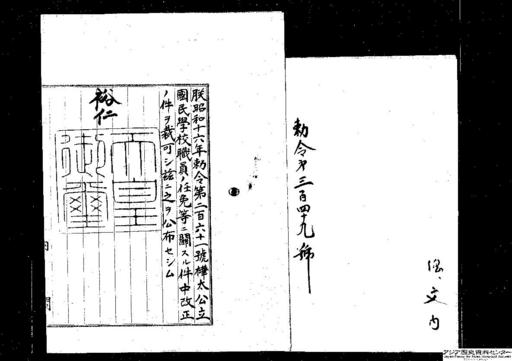 勅令第三百四十九號
内
朕昭和十六年勅令第二百六十一號樺太公立
國民學校職員ノ任免等ニ關スル件中改正
ノ件ヲ裁可シ茲ニ之ヲ公布セシム
裕仁
天皇
御璽
内
閣
アジア歴史資料センター